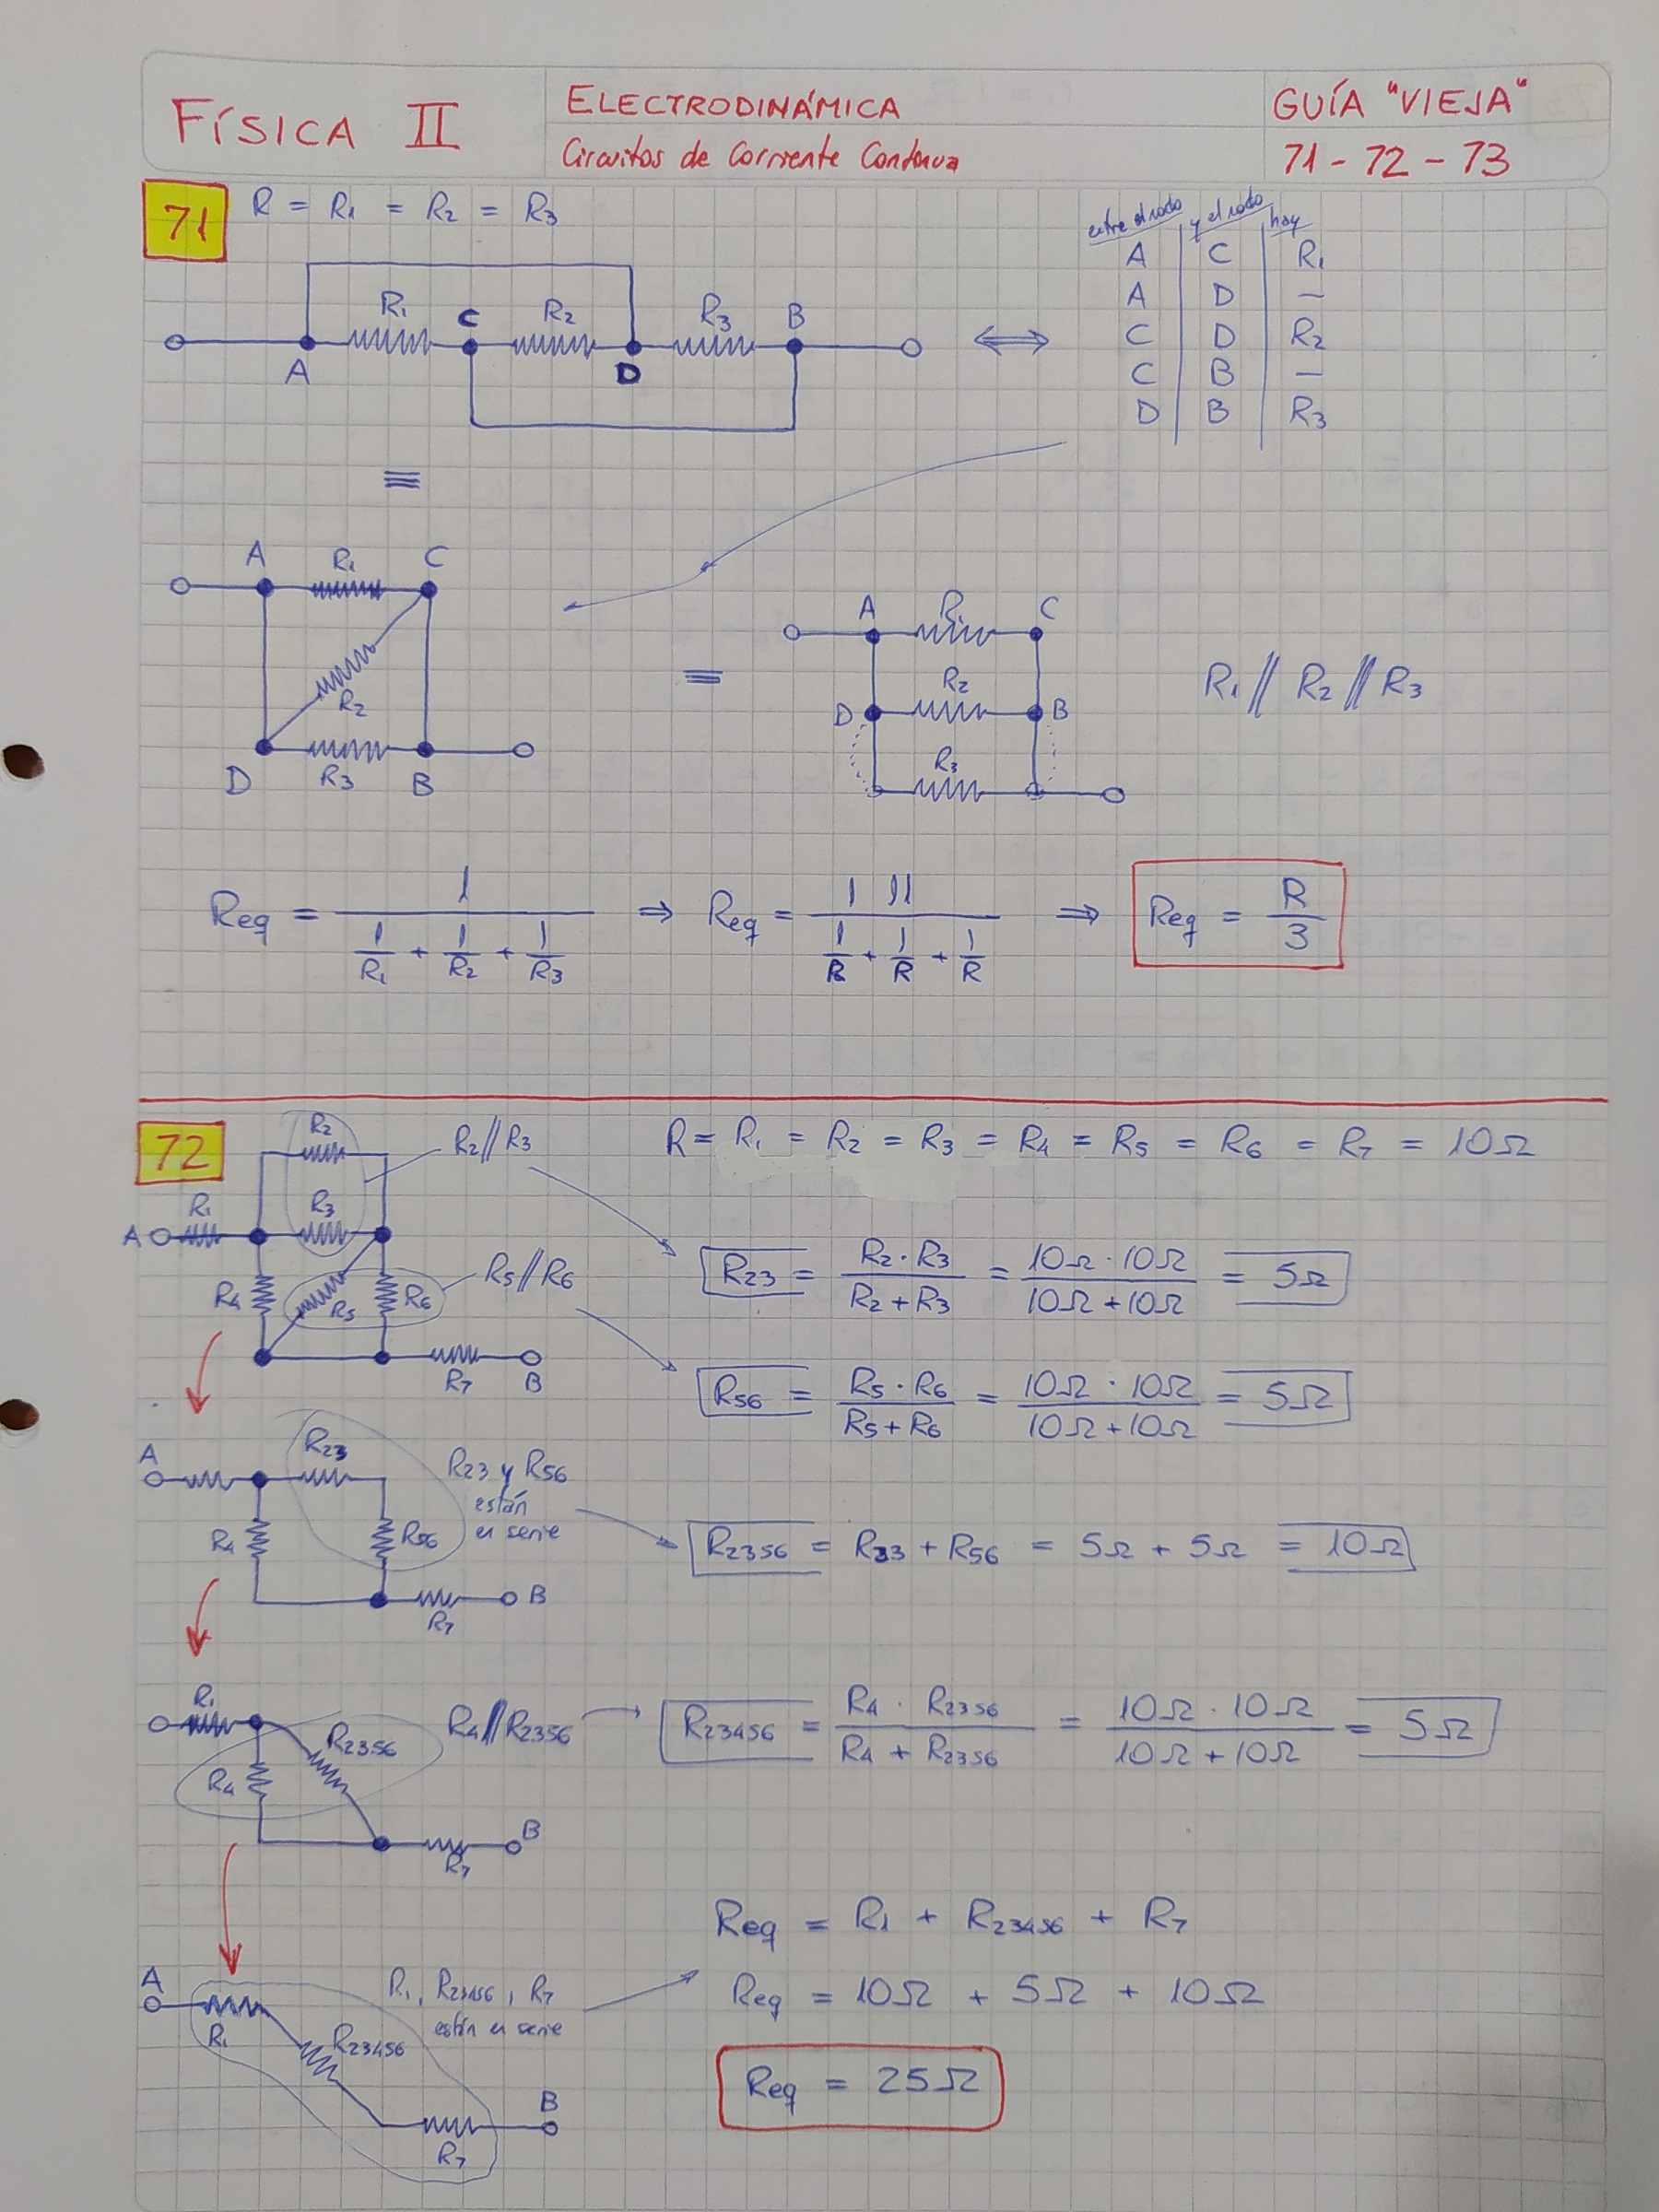 FÍSICA II
ELECTRODINÁMICA
Circuitos de Corriente Continua
GUÍA "VIEJA"
71 - 72 - 73
71
R = R1 = R2 = R3
entre el nodo | y el nodo | hay
A | C | R1
A | D | —
C | D | R2
C | B | —
D | B | R3
R1 C R2 R3 B
A D
⟺
≡
A R1 C
R2
D R3 B
≡
A R1 C
D R2 B
R3
R1 // R2 // R3
Req = 1 / (1/R1 + 1/R2 + 1/R3) ⇒ Req = 1 / (1/R + 1/R + 1/R) ⇒ Req = R/3
72
R = R1 = R2 = R3 = R4 = R5 = R6 = R7 = 10Ω
R2
R2//R3
R1 R3
A
R4 R5 R6
R5//R6
R7 B
R23 = R2 · R3 / (R2 + R3) = 10Ω · 10Ω / (10Ω + 10Ω) = 5Ω
R56 = R5 · R6 / (R5 + R6) = 10Ω · 10Ω / (10Ω + 10Ω) = 5Ω
A R23
R4 R56
R7 B
R23 y R56
están
en serie
R2356 = R23 + R56 = 5Ω + 5Ω = 10Ω
R1
R2356
R4
R7 B
R4//R2356
R23456 = R4 · R2356 / (R4 + R2356) = 10Ω · 10Ω / (10Ω + 10Ω) = 5Ω
A
R1 R23456
R7 B
R1, R23456, R7
están en serie
Req = R1 + R23456 + R7
Req = 10Ω + 5Ω + 10Ω
Req = 25Ω